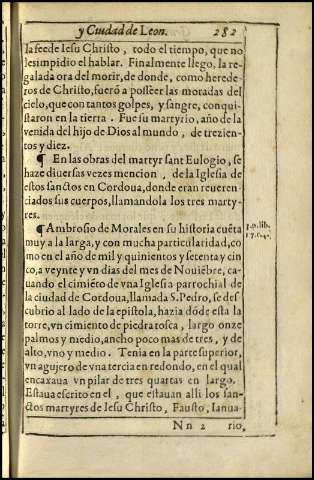 y Ciudad de Leon. 282
la fee de Iesu Christo, todo el tiempo, que no
les impidio el hablar. Finalmente llego, la re-
galada ora del morir, de donde, como herede-
ros de Christo, fuerō a posseer las moradas del
cielo, que con tantos golpes, y sangre, conqui-
staron en la tierra. Fue su martyrio, año de la
venida del hijo de Dios al mundo, de trezien-
tos y diez.
¶ En las obras del martyr sant Eulogio, se
haze diuersas vezes mencion, de la Iglesia de
estos sanctos en Cordoua, donde eran reueren-
ciados sus cuerpos, llamandola los tres marty-
res.
¶ Ambrosio de Morales en su historia cuēta
muy a la larga, y con mucha particularidad, co
mo en el año de mil y quinientos y setenta y cin
co, a veynte y vn dias del mes de Nouiēbre, ca-
uando el cimiēto de vna Iglesia parrochial de
la ciudad de Cordoua, llamada S. Pedro, se des
cubrio al lado de la epistola, hazia dōde esta la
torre, vn cimiento de piedra tosca, largo onze
palmos y medio, ancho poco mas de tres, y de
alto, vno y medio. Tenia en la parte superior,
vn agujero de vna tercia en redondo, en el qual
encaxaua vn pilar de tres quartas en largo.
Estaua escrito en el, que estauan alli los san-
ctos martyres de Iesu Christo, Fausto, Ianua-
N n 2 rio,